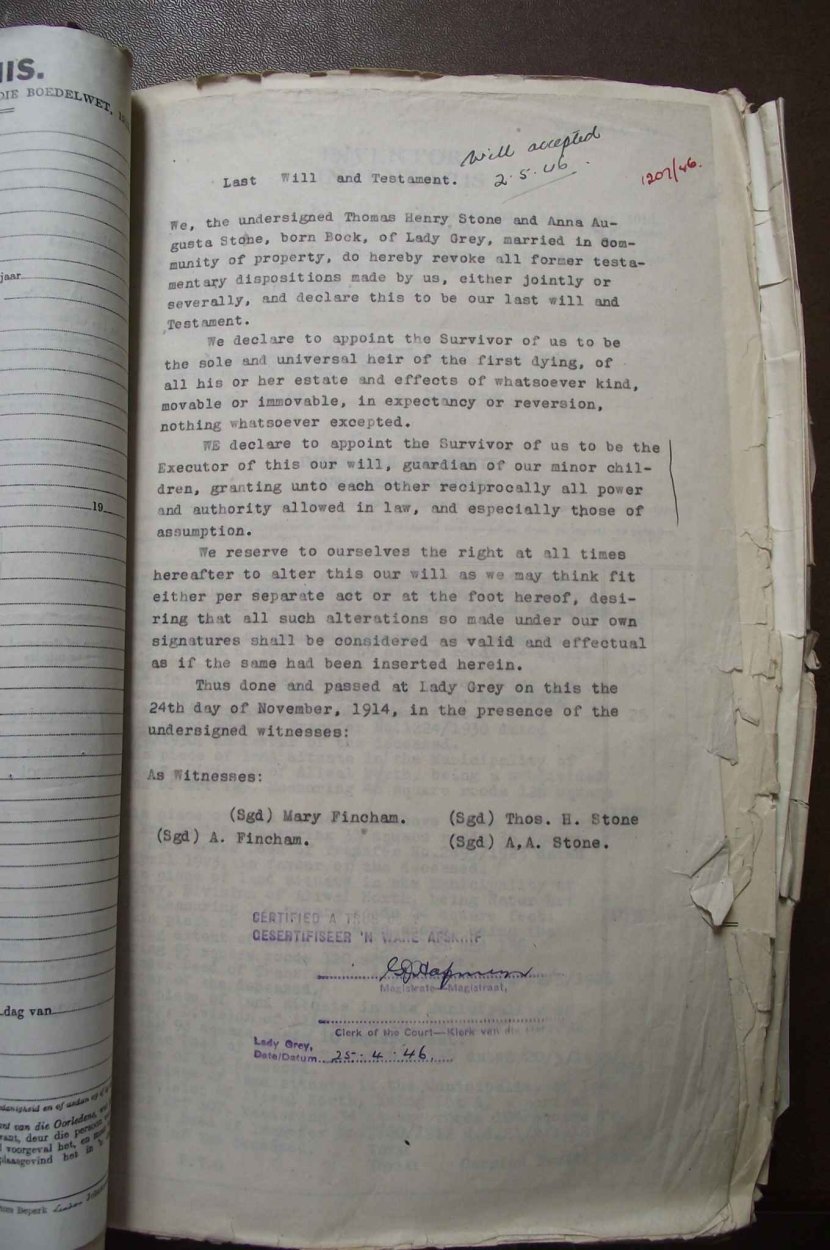 DIE BOEDELWET,
jaar
19
dag van
Will accepted
2.5.46.
1207/46.
Last Will and Testament.
We, the undersigned Thomas Henry Stone and Anna Au-
gusta Stone, born Bock, of Lady Grey, married in Com-
munity of property, do hereby revoke all former testa-
mentary dispositions made by us, either jointly or
severally, and declare this to be our last will and
Testament.
We declare to appoint the Survivor of us to be
the sole and universal heir of the first dying, of
all his or her estate and effects of whatsoever kind,
movable or immovable, in expectancy or reversion,
nothing whatsoever excepted.
WE declare to appoint the Survivor of us to be the
Executor of this our will, guardian of our minor chil-
dren, granting unto each other reciprocally all power
and authority allowed in law, and especially those of
assumption.
We reserve to ourselves the right at all times
hereafter to alter this our will as we may think fit
either per separate act or at the foot hereof, desi-
ring that all such alterations so made under our own
signatures shall be considered as valid and effectual
as if the same had been inserted herein.
Thus done and passed at Lady Grey on this the
24th day of November, 1914, in the presence of the
undersigned witnesses:
As Witnesses:
(Sgd) Mary Fincham. (Sgd) Thos. H. Stone
(Sgd) A. Fincham. (Sgd) A,A. Stone.
CERTIFIED A TRUE
GESERTIFISEER 'N WARE AFSKRIF
Magistrate—Magistraat,
Clerk of the Court—Klerk van die Hof
Lady Grey,
Date/Datum 25.4.46.